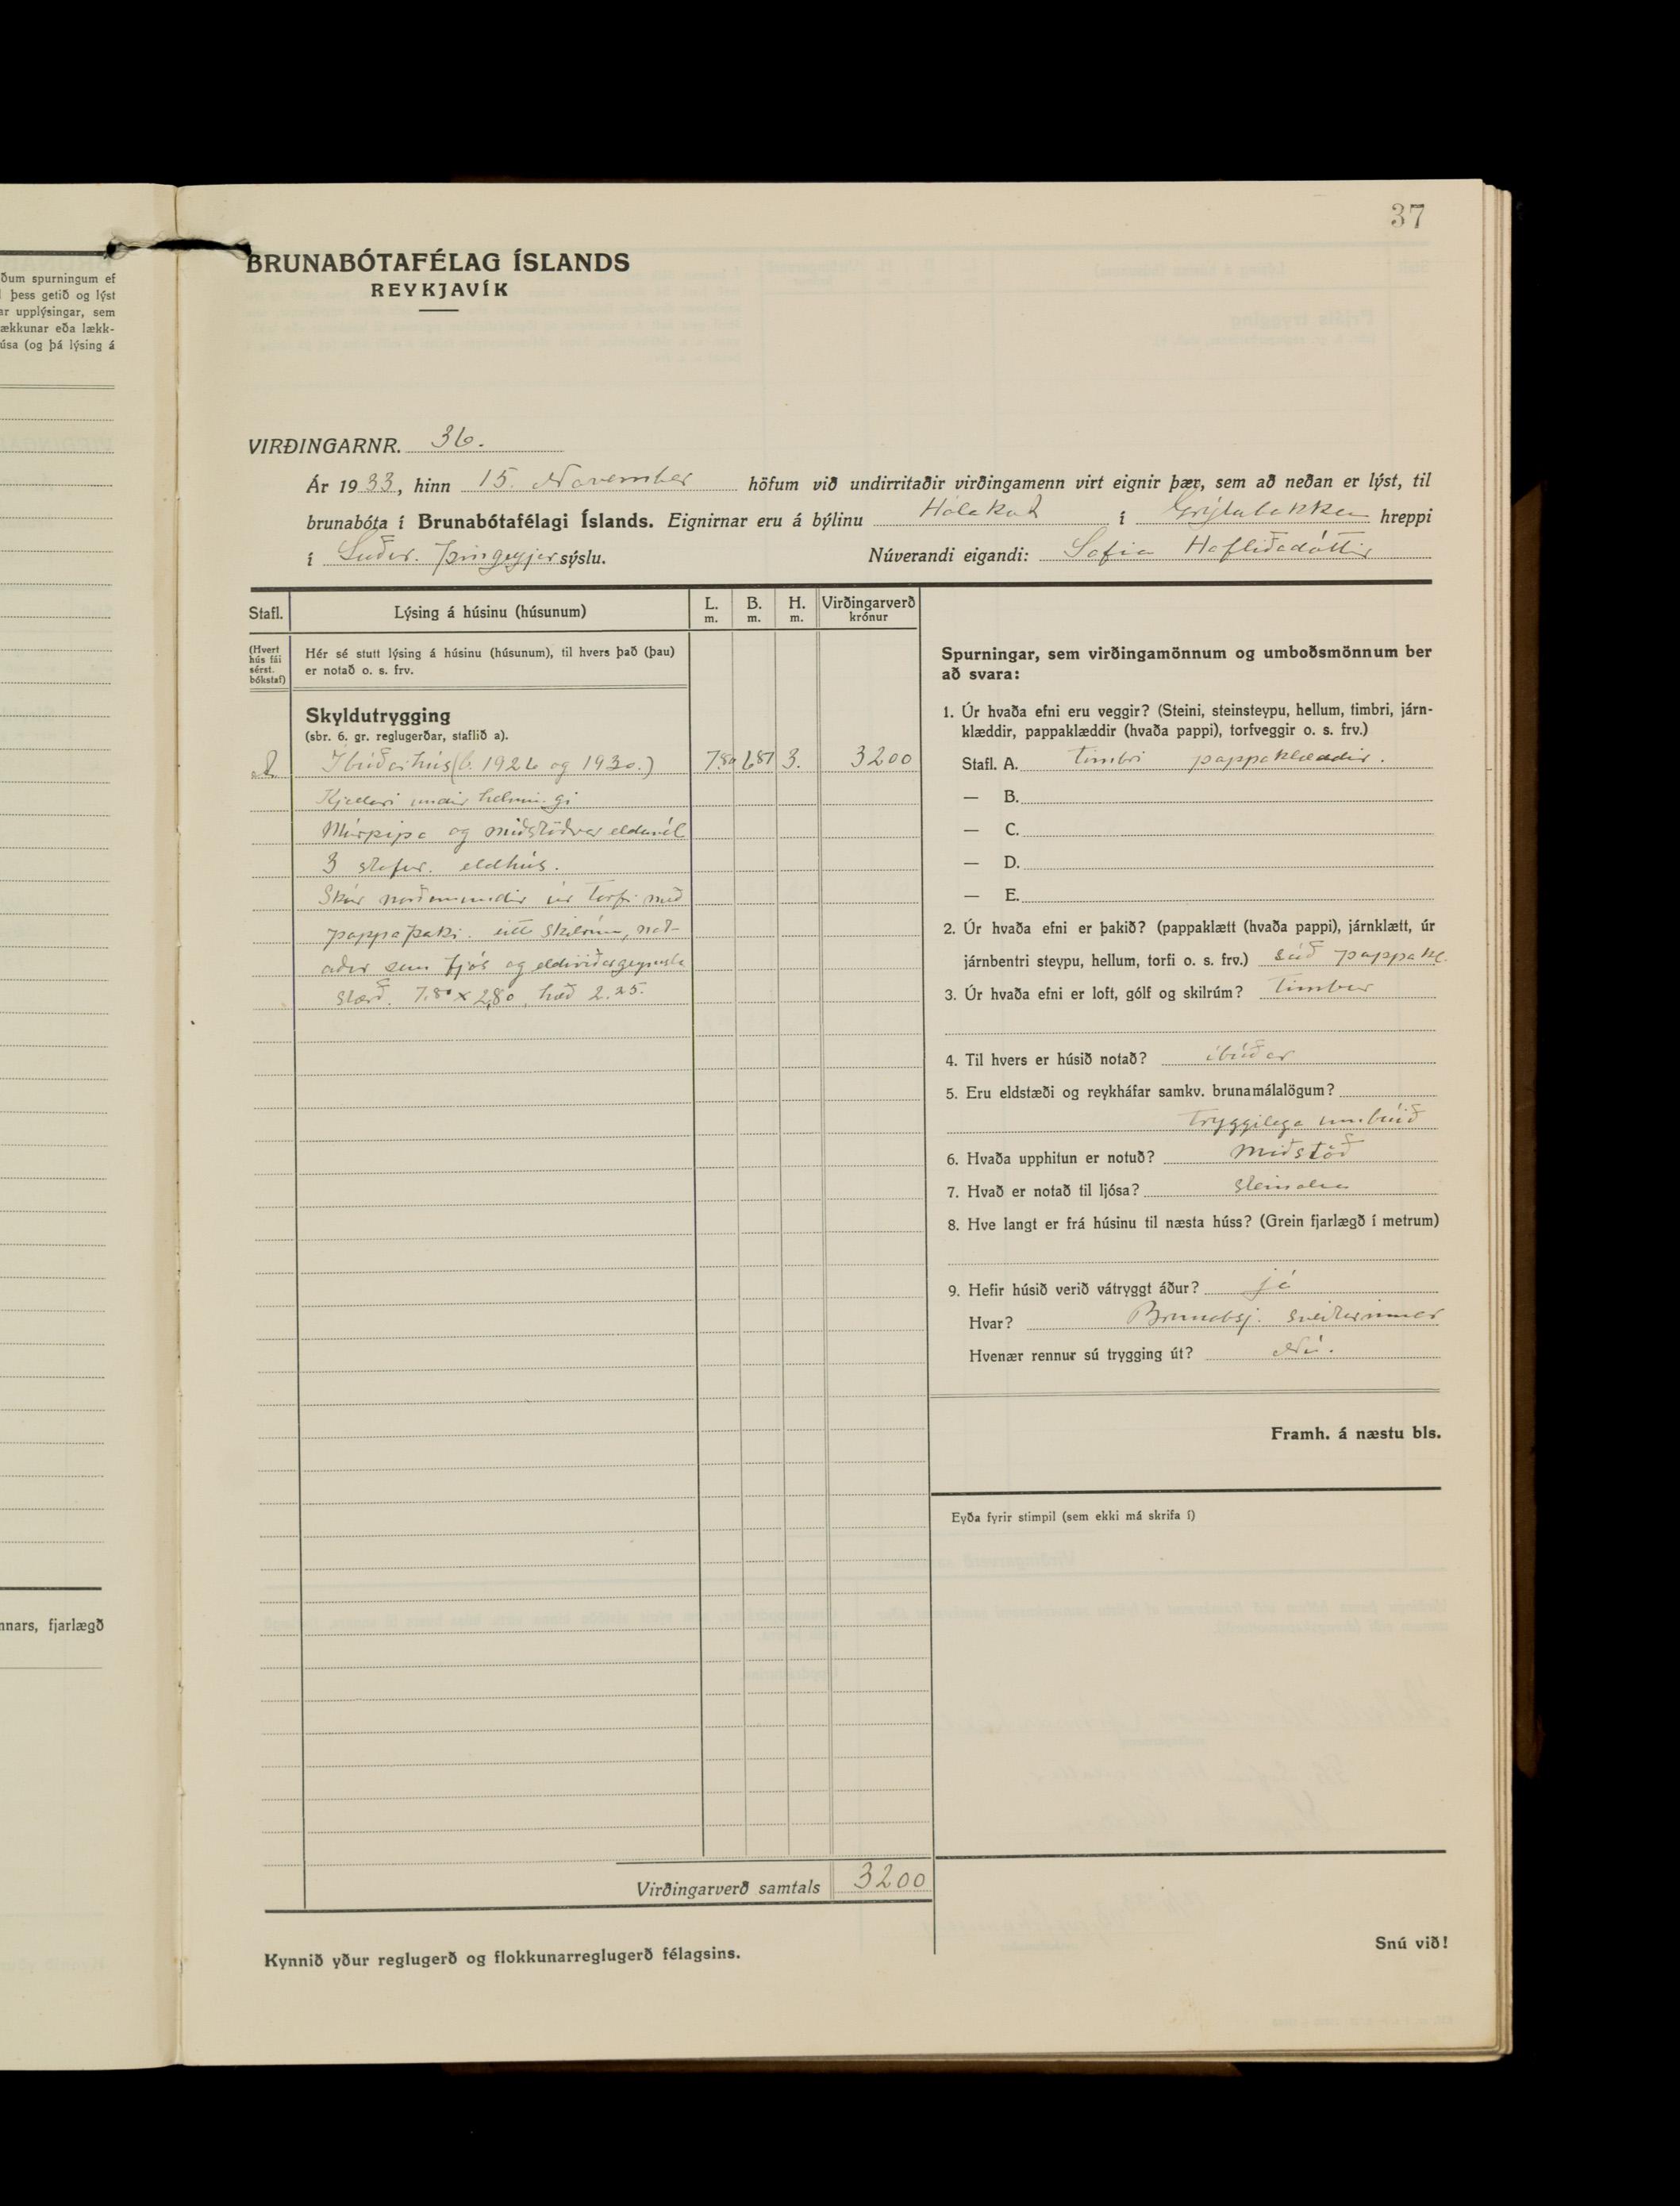 ðum spurningum ef
þess getið og lýst
ar upplýsingar, sem
ækkunar eða lækk-
úsa (og þá lýsing á
nnars, fjarlægð
37
BRUNABÓTAFÉLAG ÍSLANDS
REYKJAVÍK
VIRÐINGARNR. 36.
Ár 1933, hinn 15. November höfum við undirritaðir virðingamenn virt eignir þær, sem að neðan er lýst, til
brunabóta í Brunabótafélagi Íslands. Eignirnar eru á býlinu Hólakot í Grýtubakka hreppi
í Suður. Þingeyjar sýslu. Núverandi eigandi: Sofia Hafliðadóttir
Stafl. Lýsing á húsinu (húsunum) L. m. B. m. H. m. Virðingarverð krónur
(Hvert hús fái sérst. bókstaf)
Hér sé stutt lýsing á húsinu (húsunum), til hvers það (þau)
er notað o. s. frv.
Skyldutrygging
(sbr. 6. gr. reglugerðar, staflið a).
Íbúðarhús (b. 1926 og 1930.) 7.80 6.87 3. 3200
Kjallari undir helmingi
Múrpípa og miðstöðvar eldavél
3 stofur. eldhús.
Skúr norðanundir úr torfi með
pappaþaki. eitt skilrúm, not-
aður sem fjós og eldiviðargeymsla
stærð. 7.80 x 2.80, hæð 2.25.
Virðingarverð samtals 3200
Kynnið yður reglugerð og flokkunarreglugerð félagsins.
Spurningar, sem virðingamönnum og umboðsmönnum ber
að svara:
1. Úr hvaða efni eru veggir? (Steini, steinsteypu, hellum, timbri, járn-
klæddir, pappaklæddir (hvaða pappi), torfveggir o. s. frv.)
Stafl. A. timbri pappaklæddir.
— B.
— C.
— D.
— E.
2. Úr hvaða efni er þakið? (pappaklætt (hvaða pappi), járnklætt, úr
járnbentri steypu, hellum, torfi o. s. frv.) súð pappakl.
3. Úr hvaða efni er loft, gólf og skilrúm? timbur
4. Til hvers er húsið notað? íbúðar
5. Eru eldstæði og reykháfar samkv. brunamálalögum?
tryggilega umbúið
6. Hvaða upphitun er notuð? Miðstöð
7. Hvað er notað til ljósa? steinolía
8. Hve langt er frá húsinu til næsta húss? (Grein fjarlægð í metrum)
9. Hefir húsið verið vátryggt áður? já
Hvar? Brunabsj. sveitarinnar
Hvenær rennur sú trygging út? Nú.
Framh. á næstu bls.
Eyða fyrir stimpil (sem ekki má skrifa í)
Snú við!